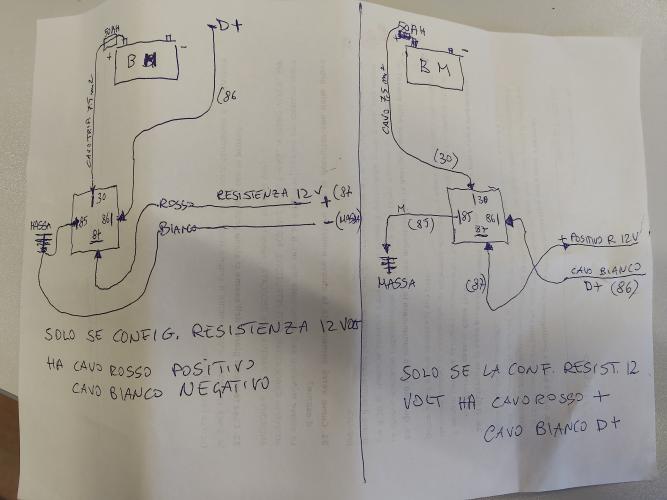 50AH
D+
+
-
B M
(86
CAVOTRIA 75 m2
30
85
86
87
MASSA
ROSSO RESISTENZA 12 V. + (87
BIANCO - (MASSA)
SOLO SE CONFIG. RESISTENZA 12 Volt
HA CAVO ROSSO POSITIVO
CAVO BIANCO NEGATIVO
50AH
+
-
B M
CAVO 75 m2
(30)
30
85
86
87
M
(85)
MASSA
+ POSITIVO R 12V
CAVO BIANCO
D+ (86)
(87)
SOLO SE LA CONF. RESIST. 12
VOLT HA CAVO ROSSO +
CAVO BIANCO D+